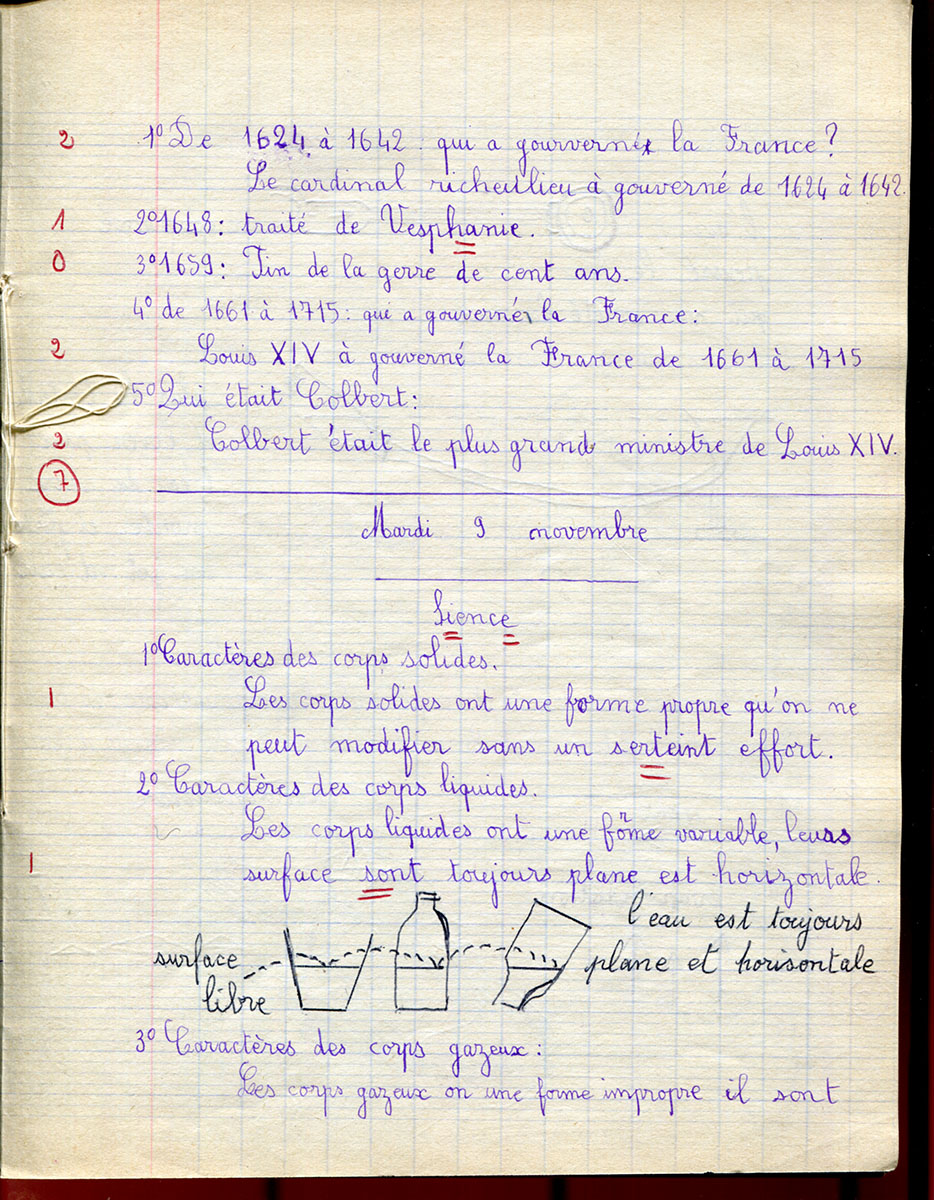 2 1° De 1624 à 1642 : qui a gourverné la France?
Le cardinal richeillieu à gouverné de 1624 à 1642.
1 2° 1648: traité de Vesphanie.
0 3° 1659: Fin de la gerre de cent ans.
4° de 1661 à 1715: qui a gouverné la France:
2 Louis XIV à gouverné la France de 1661 à 1715
5° Qui était Colbert:
2 Colbert était le plus grand ministre de Louis XIV.
7
Mardi 9 novembre
Sience
1° Caractères des corps solides.
1 Les corps solides ont une forme propre qu'on ne
peut modifier sans un serteint effort.
2° Caractères des corps liquides.
Les corps liquides ont une forme variable, leurs
1 surface sont toujours plane est horizontale.
l'eau est toujours
surface plane et horisontale
libre
3° Caractères des corps gazeux:
Les corps gazeux on une forme impropre il sont